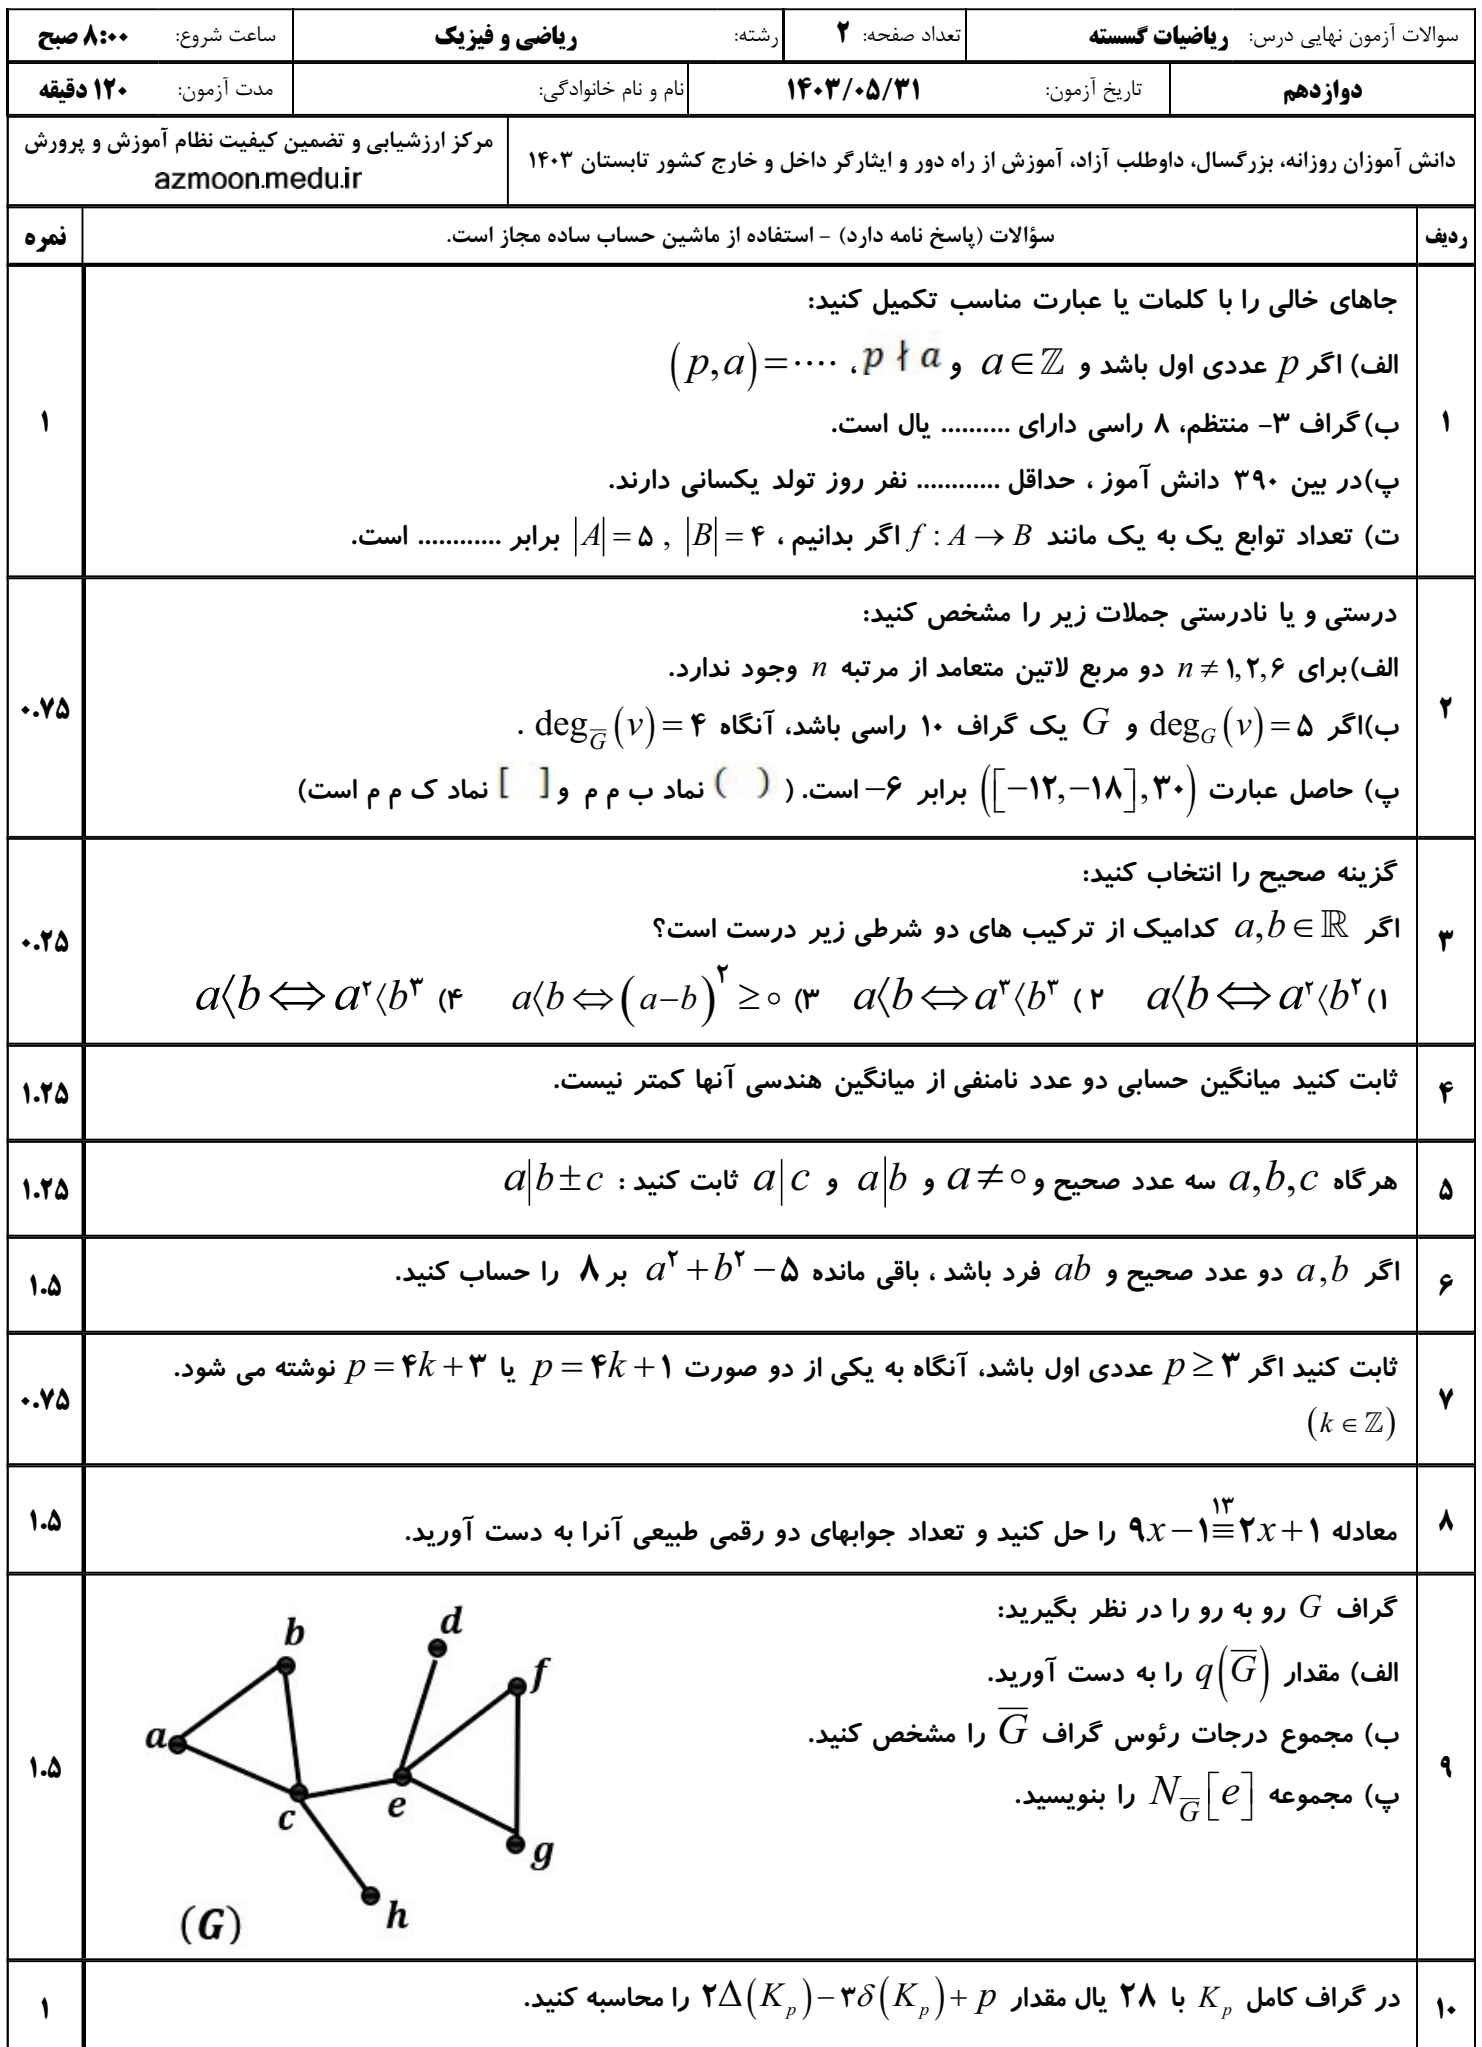 سوالات آزمون نهایی درس: ریاضیات گسسته تعداد صفحه: ۲ رشته: ریاضی و فیزیک ساعت شروع: ۸:۰۰ صبح
دوازدهم تاریخ آزمون: ۱۴۰۳/۰۵/۳۱ نام و نام خانوادگی: مدت آزمون: ۱۲۰ دقیقه
دانش آموزان روزانه، بزرگسال، داوطلب آزاد، آموزش از راه دور و ایثارگر داخل و خارج کشور تابستان ۱۴۰۳
مرکز ارزشیابی و تضمین کیفیت نظام آموزش و پرورش
azmoon.medu.ir
ردیف سؤالات (پاسخ نامه دارد) - استفاده از ماشین حساب ساده مجاز است. نمره
۱
جاهای خالی را با کلمات یا عبارت مناسب تکمیل کنید:
الف) اگر p عددی اول باشد و a∈ℤ و p ∤ a ، (p,a)=····
ب) گراف ۳- منتظم، ۸ راسی دارای .......... یال است.
پ)در بین ۳۹۰ دانش آموز ، حداقل ............ نفر روز تولد یکسانی دارند.
ت) تعداد توابع یک به یک مانند f : A → B اگر بدانیم ، |A| = ۵ , |B| = ۴ برابر ............ است.
۱
۲
درستی و یا نادرستی جملات زیر را مشخص کنید:
الف)برای n ≠ ۱,۲,۶ دو مربع لاتین متعامد از مرتبه n وجود ندارد.
ب)اگر deg_G(v) = ۵ و G یک گراف ۱۰ راسی باشد، آنگاه deg_G̅(v) = ۴ .
پ) حاصل عبارت ([−۱۲,−۱۸],۳۰) برابر −۶ است. ( ( ) نماد ب م م و [ ] نماد ک م م است)
۰.۷۵
۳
گزینه صحیح را انتخاب کنید:
اگر a,b∈ℝ کدامیک از ترکیب های دو شرطی زیر درست است؟
۱) a⟨b ⇔ a²⟨b² ۲ ) a⟨b ⇔ a³⟨b³ ۳) a⟨b ⇔ (a−b)² ≥ ۰ ۴) a⟨b ⇔ a²⟨b³
۰.۲۵
۴
ثابت کنید میانگین حسابی دو عدد نامنفی از میانگین هندسی آنها کمتر نیست.
۱.۲۵
۵
هر گاه a,b,c سه عدد صحیح و a≠۰ و a|b و a|c ثابت کنید : a|b±c
۱.۲۵
۶
اگر a,b دو عدد صحیح و ab فرد باشد ، باقی مانده a²+b²−۵ بر ۸ را حساب کنید.
۱.۵
۷
ثابت کنید اگر p ≥ ۳ عددی اول باشد، آنگاه به یکی از دو صورت p = ۴k+۱ یا p = ۴k+۳ نوشته می شود.
(k∈ℤ)
۰.۷۵
۸
معادله ۹x−۱ ≡^۱۳ ۲x+۱ را حل کنید و تعداد جوابهای دو رقمی طبیعی آنرا به دست آورید.
۱.۵
۹
گراف G رو به رو را در نظر بگیرید:
الف) مقدار q(G̅) را به دست آورید.
ب) مجموع درجات رئوس گراف G̅ را مشخص کنید.
پ) مجموعه N_G̅[e] را بنویسید.
a
b
c
d
e
f
g
h
(G)
۱.۵
۱۰
در گراف کامل K_p با ۲۸ یال مقدار ۲Δ(K_p)−۳δ(K_p)+p را محاسبه کنید.
۱